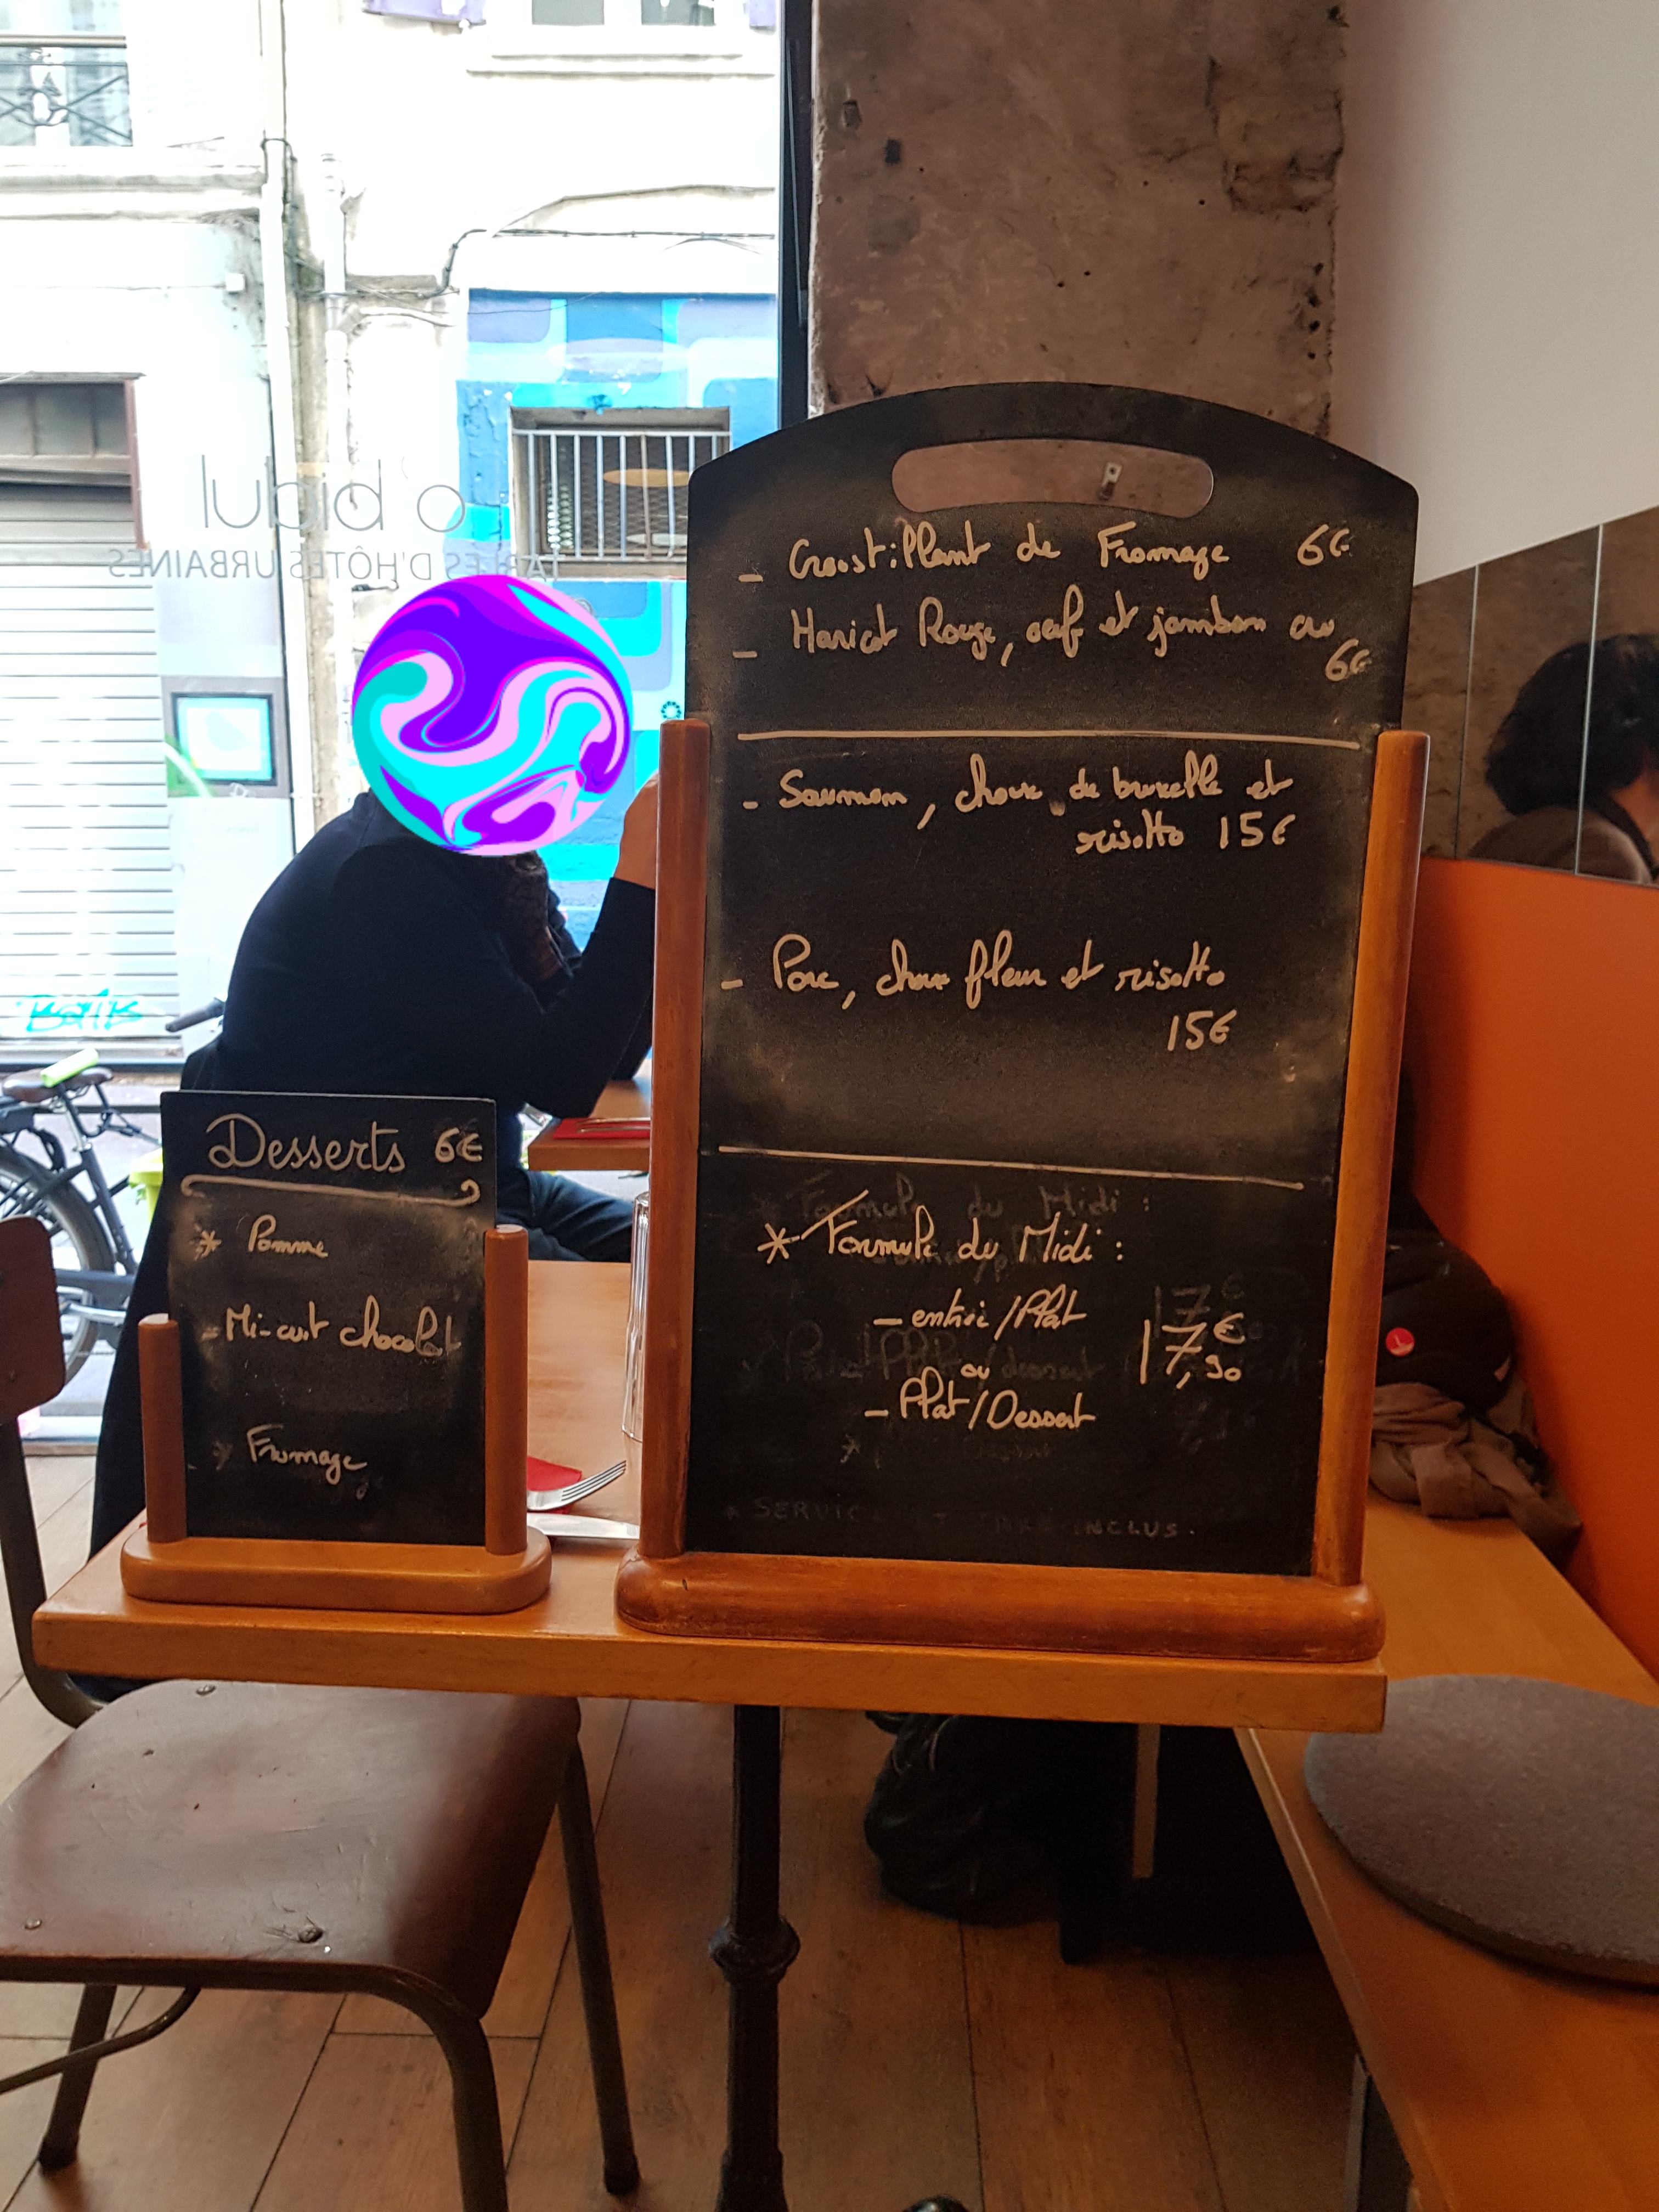 o'bidul
TABLES D'HÔTES URBAINES
- Croustillant de Fromage 6€
- Haricot Rouge, oeuf et jambon cru
6€
- Saumon, choux de bruxelle et
risotto 15€
- Porc, choux fleur et risotto
15€
* Formule du Midi :
- entrée/Plat
ou
17€,90
- Plat/Dessert
* SERVICE ET INCLUS.
Desserts 6€
* Pomme
- Mi-cuit chocolat
* Fromage